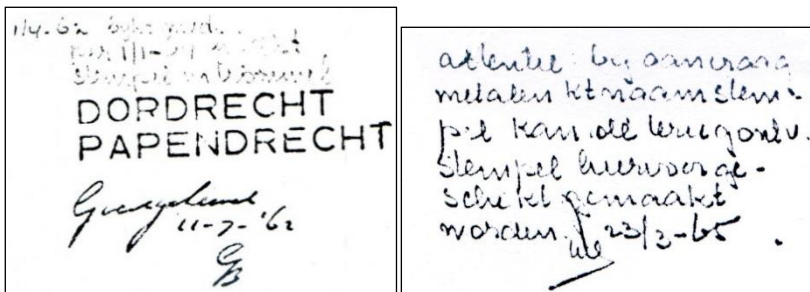 1/4-62
per 1/1-
DORDRECHT
PAPENDRECHT
Goedgekeurd
11-7-'62
attentie bij aanvraag
metalen ktnaamstem-
pel kan de terugontv.
stempel hiervoor ge-
schikt gemaakt
worden. 23/3-65